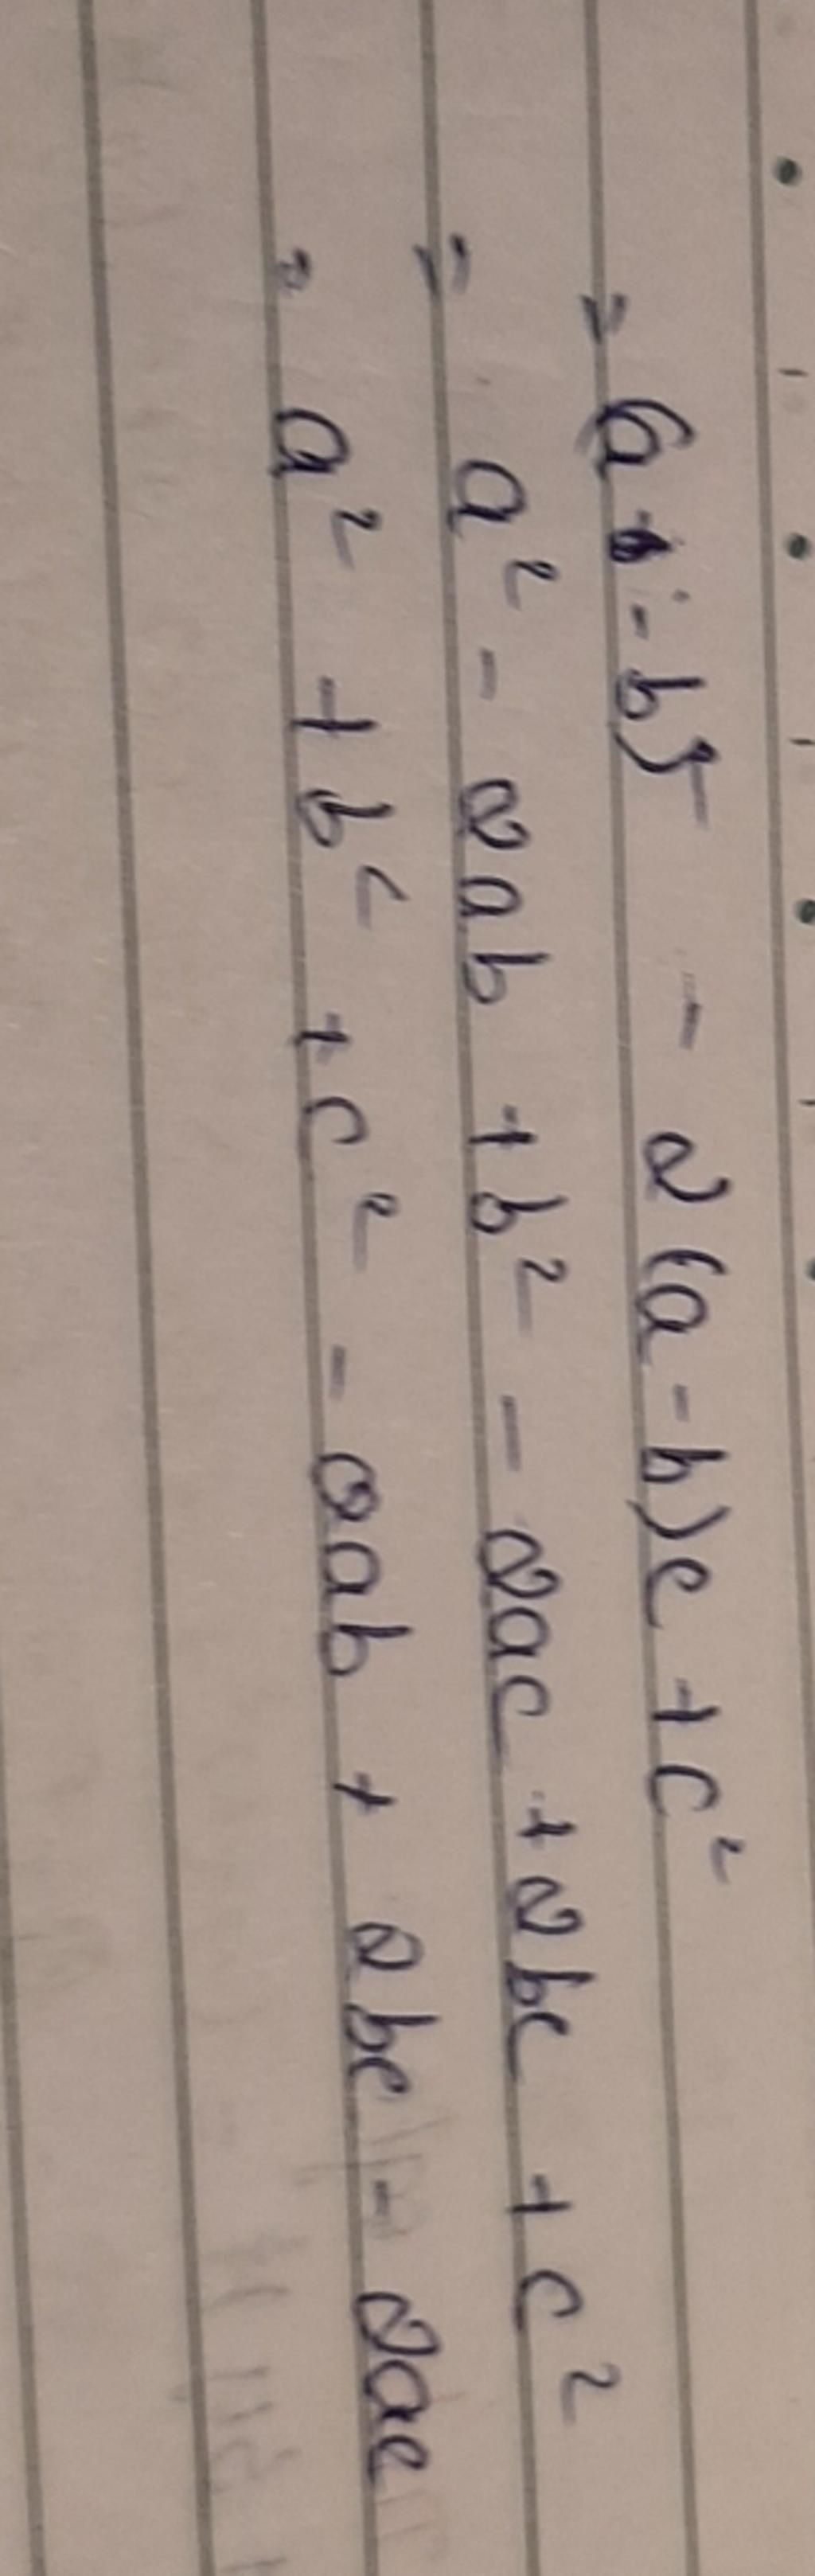 = (a - b)² - 2(a - b)c + c²
= a² - 2ab + b² - 2ac + 2bc + c²
= a² + b² + c² - 2ab + 2bc - 2ac